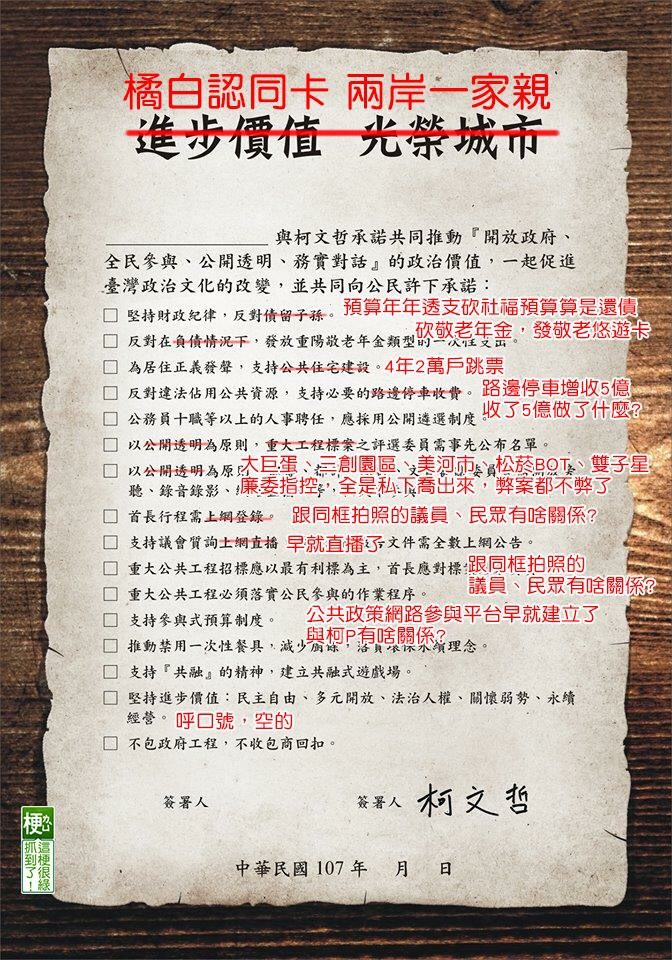 橘白認同卡 兩岸一家親
進步價值 光榮城市
與柯文哲承諾共同推動『開放政府、
全民參與、公開透明、務實對話』的政治價值,一起促進
臺灣政治文化的改變,並共同向公民許下承諾:
□ 堅持財政紀律,反對債留子孫。 預算年年透支砍社福預算算是還債
砍敬老年金,發敬老悠遊卡
□ 反對在負債情況下,發放重陽敬老年金類型的一次性支出。
□ 為居住正義發聲,支持公共住宅建設。 4年2萬戶跳票
□ 反對違法佔用公共資源,支持必要的路邊停車收費。 路邊停車增收5億
收了5億做了什麼?
□ 公務員十職等以上的人事聘任,應採用公開遴選制度
□ 以公開透明為原則,重大工程標案之評選委員需事先公布名單。
□ 以公開透明為原
大巨蛋、三創園區、美河市、松菸BOT、雙子星
廉委指控,全是私下喬出來,弊案都不弊了
聽、錄音錄影、
□ 首長行程需上網登錄。 跟同框拍照的議員、民眾有啥關係?
□ 支持議會質詢上網直播 早就直播了 文件需全數上網公告。
□ 重大公共工程招標應以最有利標為主,首長應對標 跟同框拍照的
議員、民眾有啥關係?
□ 重大公共工程必須落實公民參與的作業程序。
□ 支持參與式預算制度。 公共政策網路參與平台早就建立了
與柯P有啥關係?
□ 推動禁用一次性餐具,減少廚餘,落實環保永續理念。
□ 支持『共融』的精神,建立共融式遊戲場。
□ 堅持進步價值:民主自由、多元開放、法治人權、關懷弱勢、永續
經營。 呼口號,空的
□ 不包政府工程,不收包商回扣。
簽署人 簽署人 柯文哲
中華民國 107 年 月 日
梗ㄍㄥˇ
這梗很綠
抓到了!